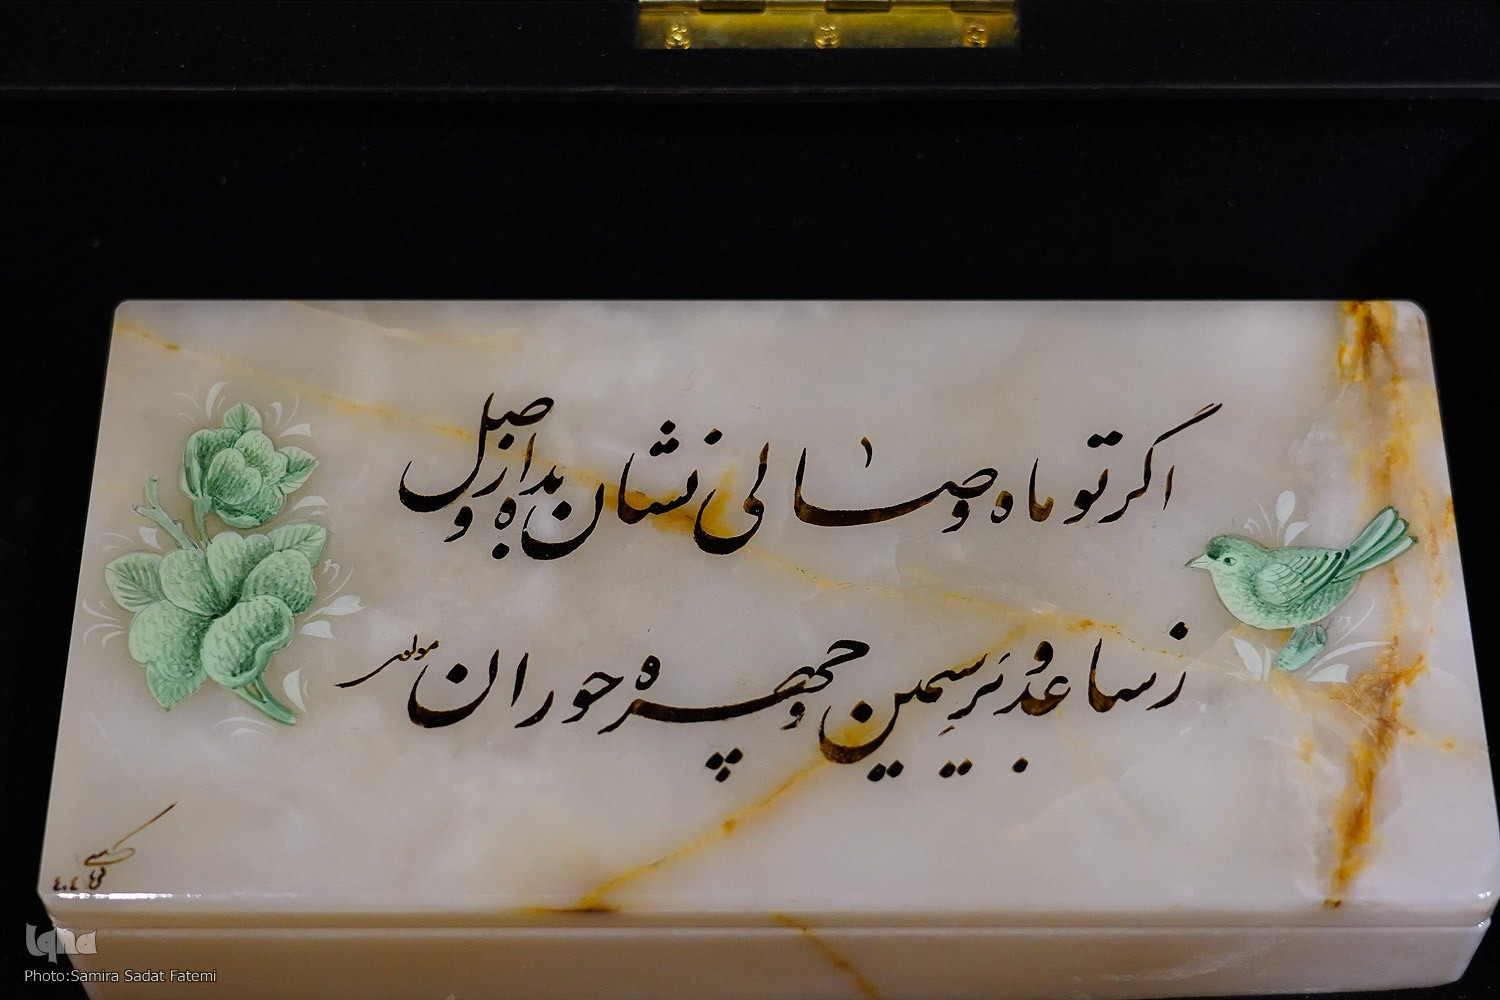 اگر تو ماه وصالی نشان بده از وصل
ز ساعد و بر سیمین و چهره حوران
مولوی
۴۰۴
Iqna
Photo:Samira Sadat Fatemi